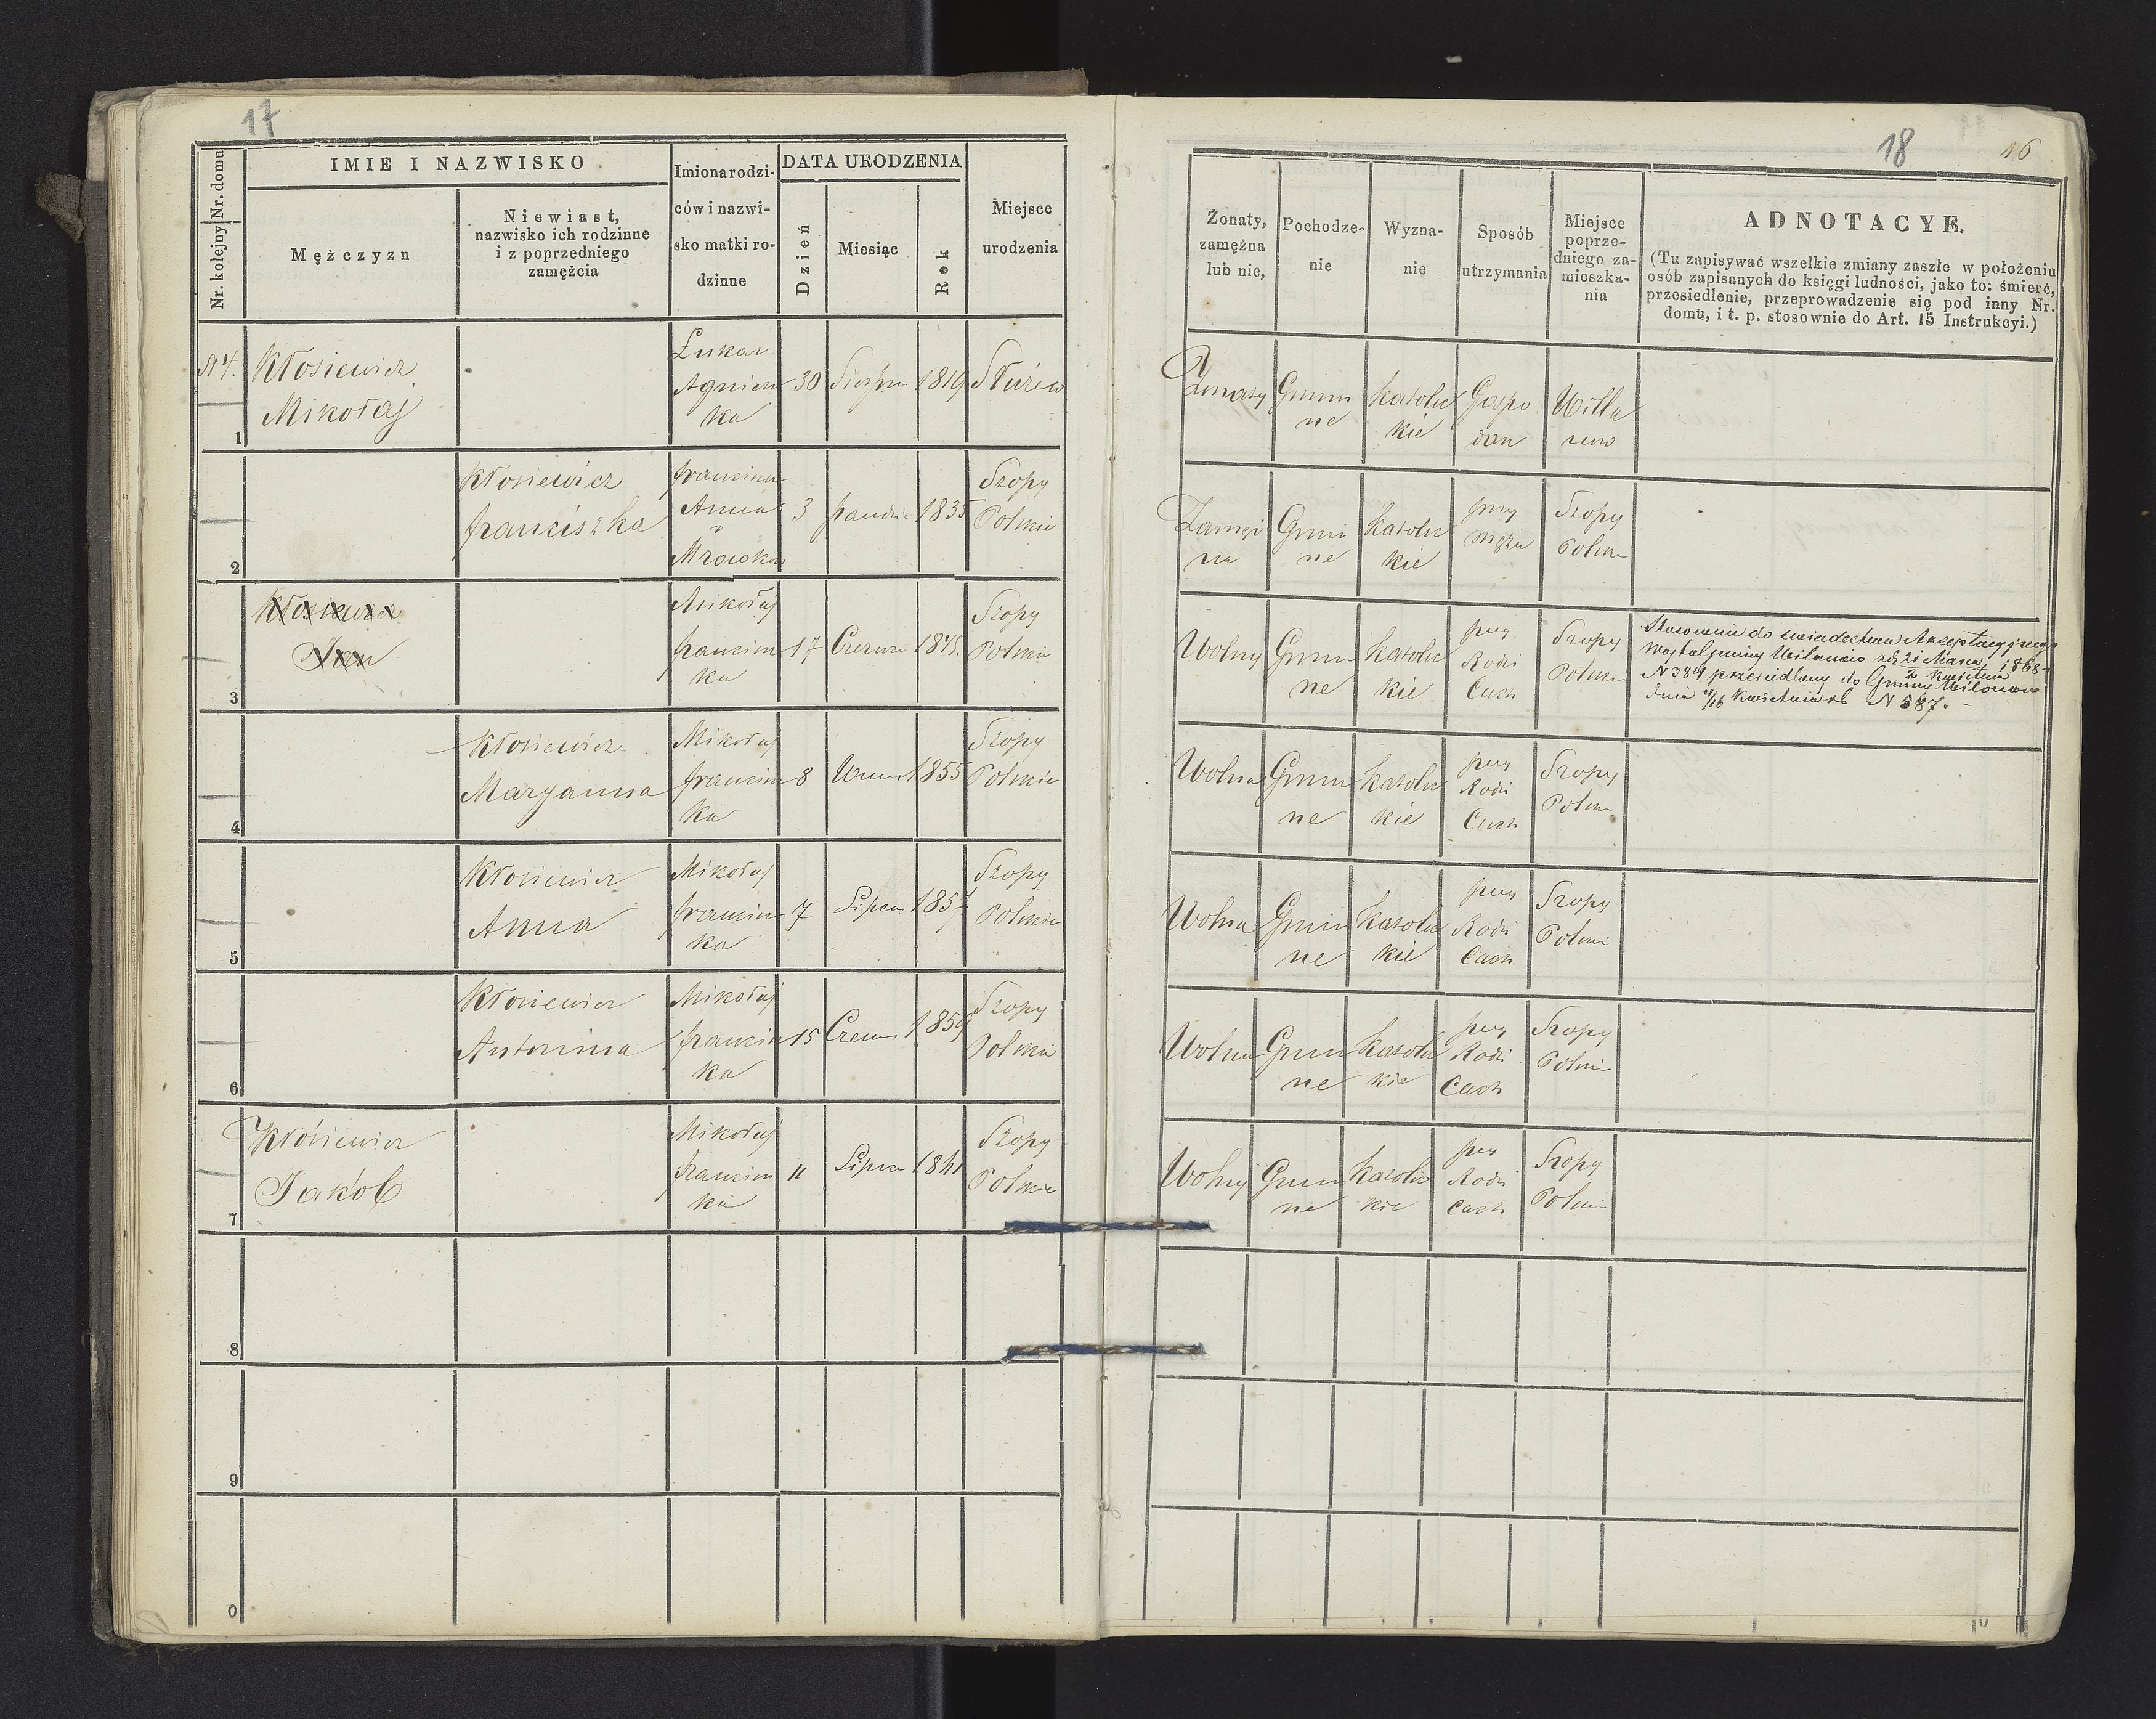 17
Nr. kolejny Nr. domu
IMIE I NAZWISKO
Mężczyzn
Niewiast,
nazwisko ich rodzinne
i z poprzedniego
zamężcia
Imiona rodzi-
ców i nazwi-
sko matki ro-
dzinne
DATA URODZENIA
Dzień
Miesiąc
Rok
Miejsce
urodzenia
N 4.
1
Kłosiewicz
Mikołaj
Łukasz
Agniesz
ka
30
1819
Służew
2
Kłosiewicz
franciszka
Anna
Mrowka
3
1835
Szopy
Polskie
3
Kłosiewicz
Jan
Mikołaj
ka
17
Czerwca
Szopy
Polskie
4
Kłosiewicz
Maryanna
Mikołaj
ka
8
1855
Szopy
Polskie
5
Kłosiewicz
Anna
Mikołaj
ka
7
Lipca
1857
Szopy
Polskie
6
Kłosiewicz
Antonina
Mikołaj
ka
15
1859
Szopy
Polskie
7
Kłosiewicz
Jakób
Mikołaj
ka
11
Lipca
Szopy
Polskie
8
9
0
18
16
Żonaty,
zamężna
lub nie,
Pochodze-
nie
Wyzna-
nie
Sposób
utrzymania
Miejsce
poprze-
dniego za-
mieszka-
nia
ADNOTACYE.
(Tu zapisywać wszelkie zmiany zaszłe w położeniu
osób zapisanych do księgi ludności, jako to: śmierć,
przesiedlenie, przeprowadzenie się pod inny Nr.
domu, i t. p. stosownie do Art. 15 Instrukcyi.)
Żonaty
Gmin
ne
Katolic
kie
Gospo
darz
Willa
now
Zamęż
na
Gmin
ne
Katolic
kie
przy
mężu
Szopy
Polskie
Wolny
Gmin
ne
Katolic
kie
przy
Rodzi
Cach
Szopy
Polskie
Stosownie do świadectwa Akceptacyjnego
Wojta Gminy Wilanów 21 Marca 1868
2 Kwietnia
N 384 przesiedlony do Gminy Wilanow
dnia 4/16 Kwietnia rb N 587.
Wolna
Gmin
ne
Katolic
kie
przy
Rodzi
Cach
Szopy
Polskie
Wolna
Gmin
ne
Katolic
kie
przy
Rodzi
Cach
Szopy
Polskie
Wolna
Gmin
ne
Katolic
kie
przy
Rodzi
Cach
Szopy
Polskie
Wolny
Gmin
ne
Katolic
kie
przy
Rodzi
Cach
Szopy
Polskie